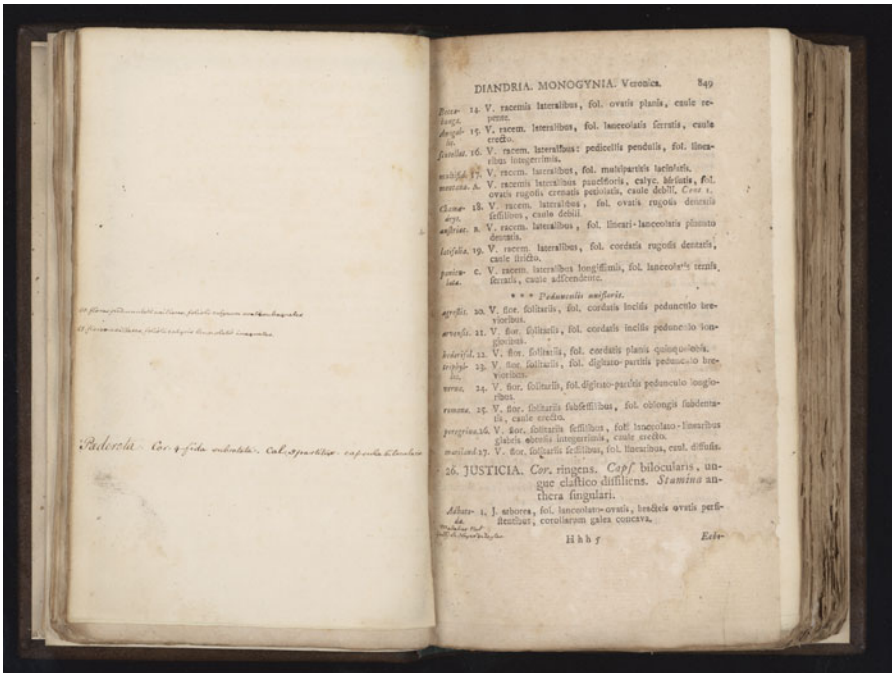 Paederota Cor. 4-fida subrotata. Cal. 5partitus. capsula bilocularis
DIANDRIA. MONOGYNIA. Veronica. 849
Becca- 14. V. racemis lateralibus, fol. ovatis planis, caule re-
bunga. pente.
Anagal- 15. V. racem. lateralibus, fol. lanceolatis serratis, caule
lis. erecto.
scutellat. 16. V. racem. lateralibus: pedicellis pendulis, fol. linea-
ribus integerrimis.
multifid. 17. V. racem. lateralibus, fol. multipartitis laciniatis.
montana. A. V. racemis lateralibus paucifloris, calyc. hirsutis, fol.
ovatis rugosis crenatis petiolatis, caule debili. Cent 1.
Chamæ- 18. V. racem. lateralibus, fol. ovatis rugosis dentatis
drys. sessilibus, caule debili.
austriac. B. V. racem. lateralibus, fol. lineari-lanceolatis pinnato
dentatis.
latifolia. 19. V. racem. lateralibus, fol. cordatis rugosis dentatis,
caule stricto.
panicu- C. V. racem. lateralibus longissimis, fol. lanceolatis ternis
lata. serratis, caule adscendente.
* * * Pedunculis unifloris.
agrestis. 20. V. flor. solitariis, fol. cordatis incisis pedunculo bre-
vioribus.
arvensis. 21. V. flor. solitariis, fol. cordatis incisis pedunculo lon-
gioribus.
hederifol. 22. V. flor. solitariis, fol. cordatis planis quinquelobis.
triphyl- 23. V. flor. solitariis, fol. digitato-partitis pedunculo bre-
los. vioribus.
verna. 24. V. flor. solitariis, fol. digitato-partitis pedunculo longio-
ribus.
romana. 25. V. flor. solitariis subsessilibus, fol. oblongis subdenta-
tis, caule erecto.
peregrina. 26. V. flor. solitariis sessilibus, fol. lanceolato-linearibus
glabris obtusis integerrimis, caule erecto.
mariland. 27. V. flor. solitariis sessilibus, fol. linearibus, caul. diffusis.
26. JUSTICIA. Cor. ringens. Caps. bilocularis, un-
gue elastico dissiliens. Stamina an-
thera singulari.
Adhato- 1. J. arborea, fol. lanceolato-ovatis, bracteis ovatis persi-
da. stentibus, corollarum galea concava.
Hhh 5 Ecbo-